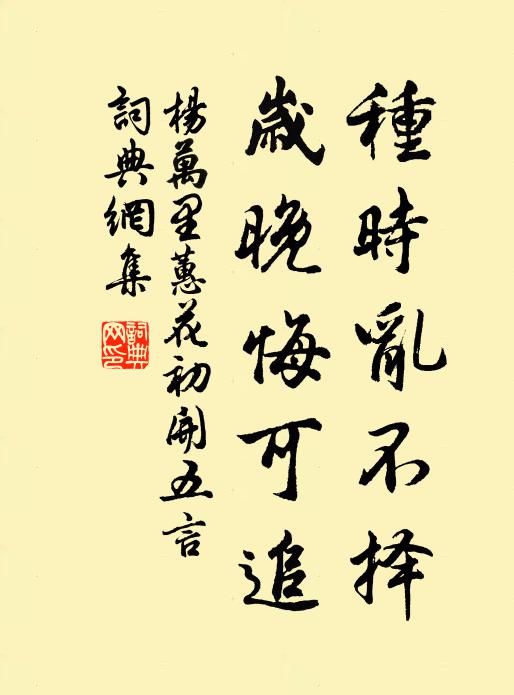 種時亂不择
歲晚悔可追
楊萬里蕙花初開五言
詞典網集
詞典網印